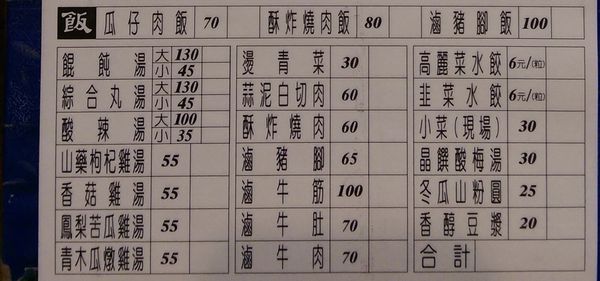 飯 瓜仔肉飯 70 酥炸燒肉飯 80 滷豬腳飯 100
餛飩湯 大 130 小 45
綜合丸湯 大 130 小 45
酸辣湯 大 100 小 35
山藥枸杞雞湯 55
香菇雞湯 55
鳳梨苦瓜雞湯 55
青木瓜燉雞湯 55
燙青菜 30
蒜泥白切肉 60
酥炸燒肉 60
滷豬腳 65
滷牛筋 100
滷牛肚 70
滷牛肉 70
高麗菜水餃 6元/(粒)
韭菜水餃 6元/(粒)
小菜(現場) 30
晶饌酸梅湯 30
冬瓜山粉圓 25
香醇豆漿 20
合計